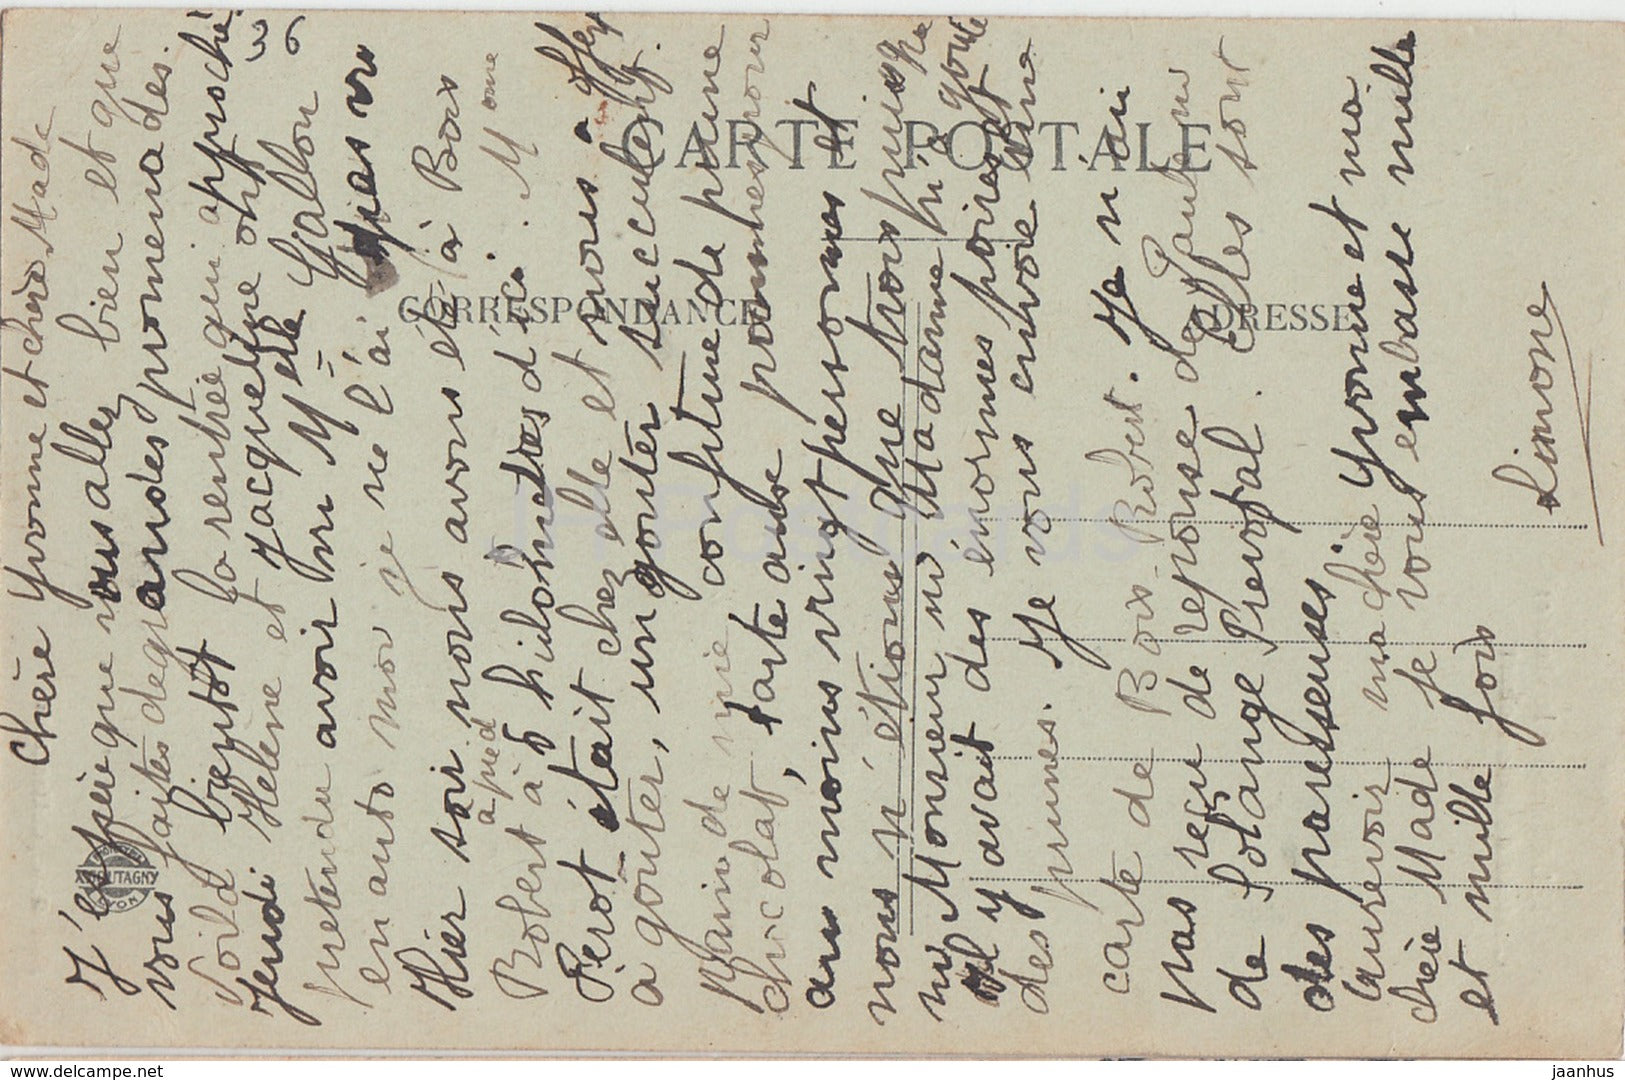 Chère Yvonne et chère Made
J'espère que vous allez bien et que
vous faites de grandes promenades.
Voilà bientôt la rentrée qui approche
Jeudi Hélène et Jacqueline ont
prétendu avoir vu Melle Gallon
en auto moi je ne l'ai pas vu
Hier soir nous avons été à Bois
Robert à pied à 5 kilomètres d'ici. Mme
Pérot était chez elle et nous a offert
à goûter, un goûter succulent.
Pain de mie confiture de prune
chocolat, tarte aux pommes pour
au moins vingt personnes et
nous n'étions que trois puisque
ni Monsieur ni Madame n'i goûté
il y avait des énormes poires et
des prunes. Je vous envoie une
carte de Bois-Robert. Je n'ai
pas reçu de réponse de Paule ni
de Solange Prevotal. Elles sont
des paresseuses.
Aurevoir ma chère Yvonne et ma
chère Made je vous embrasse mille
et mille fois
Simone
CARTE POSTALE
CORRESPONDANCE
ADRESSE
LYON
JH Postcards
delcampe.net
jaanhus